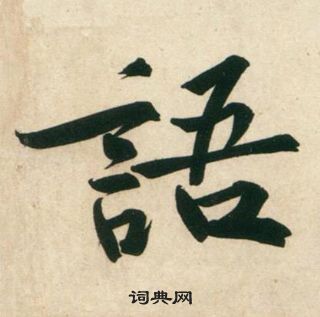 語
词典网